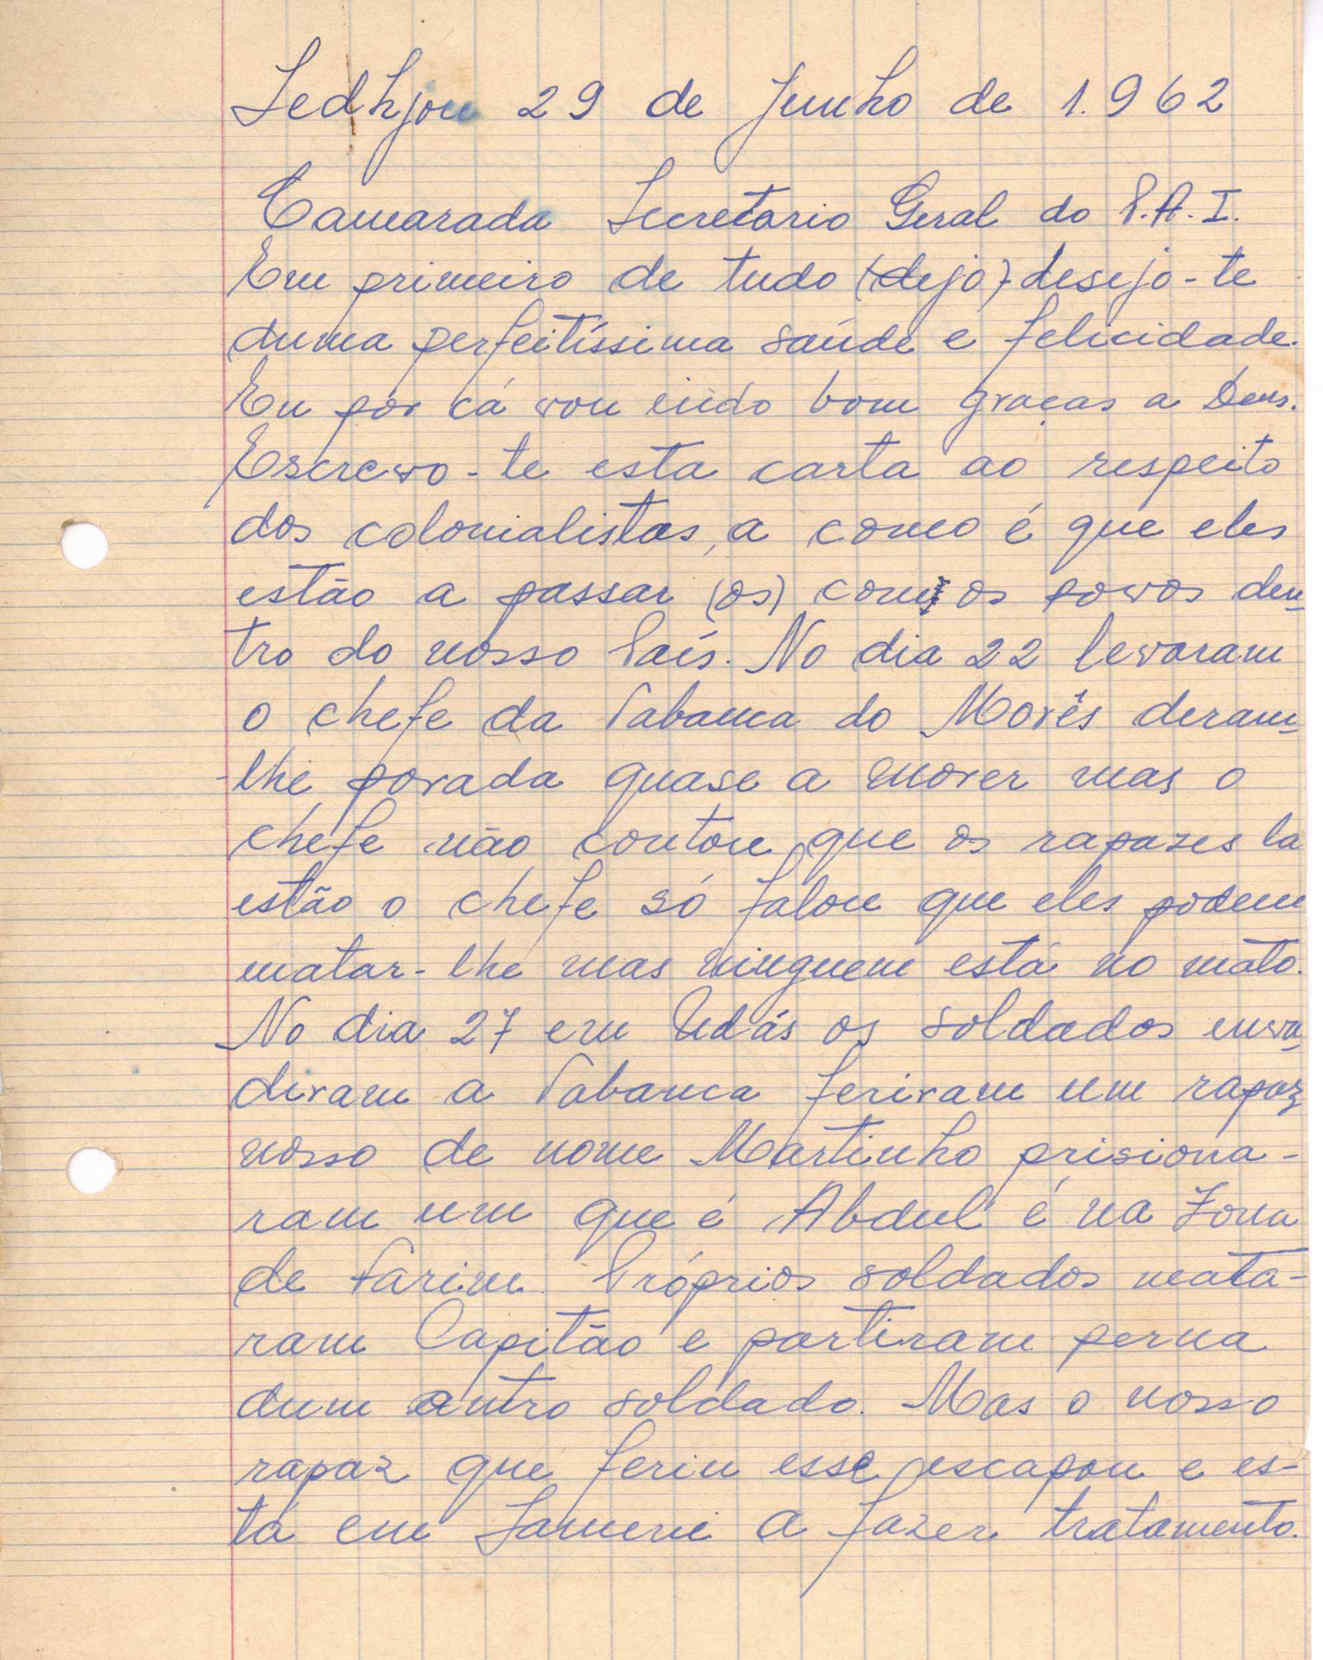 Sedhjou 29 de Junho de 1.962
Camarada Secretario Geral do P.A.I.
Em primeiro de tudo (dejo) desejo-te
duma perfeitíssima saúde e felicidade.
Eu por cá vou indo bom graças a Deus.
Escrevo-te esta carta ao respeito
dos colonialistas, a como é que eles
estão a passar (os) com os povos den-
tro do nosso País. No dia 22 levaram
o chefe da Tabanca do Morês deram-
-lhe porada quase a morer mas o
chefe não contou que os rapazes la
estão o chefe só falou que eles podem
matar-lhe mas ninguem está no mato.
No dia 27 em Udás os soldados inva-
diram a Tabanca feriram um rapaz
nosso de nome Martinho prisiona-
ram um que é Abdul é na Zona
de Farim. Próprios soldados mata-
ram Capitão e partiram perna
dum outro soldado. Mas o nosso
rapaz que feriu esse escapou e es-
tá em a fazer tratamento.